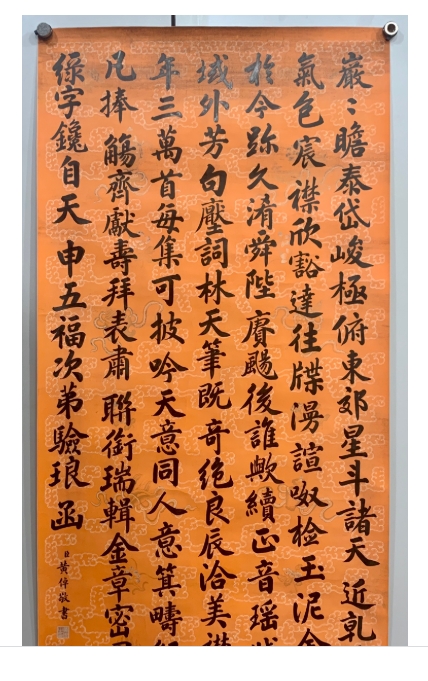 巖〻瞻泰岱峻極俯東郊星斗諸天近乾
氣色宸襟欣豁達往牒漫諠呶檢玉泥金
於今弥久淆舜陛賡颺後誰歟續正音瑶
域外芳句壓詞林天筆既奇绝良辰洽美
年三萬首每集可披吟天意同人意箕疇
凡捧觴齊獻壽拜表肅聨銜瑞輯金章密
緑字鑱自天申五福次弟驗琅函
臣黄倬敬書